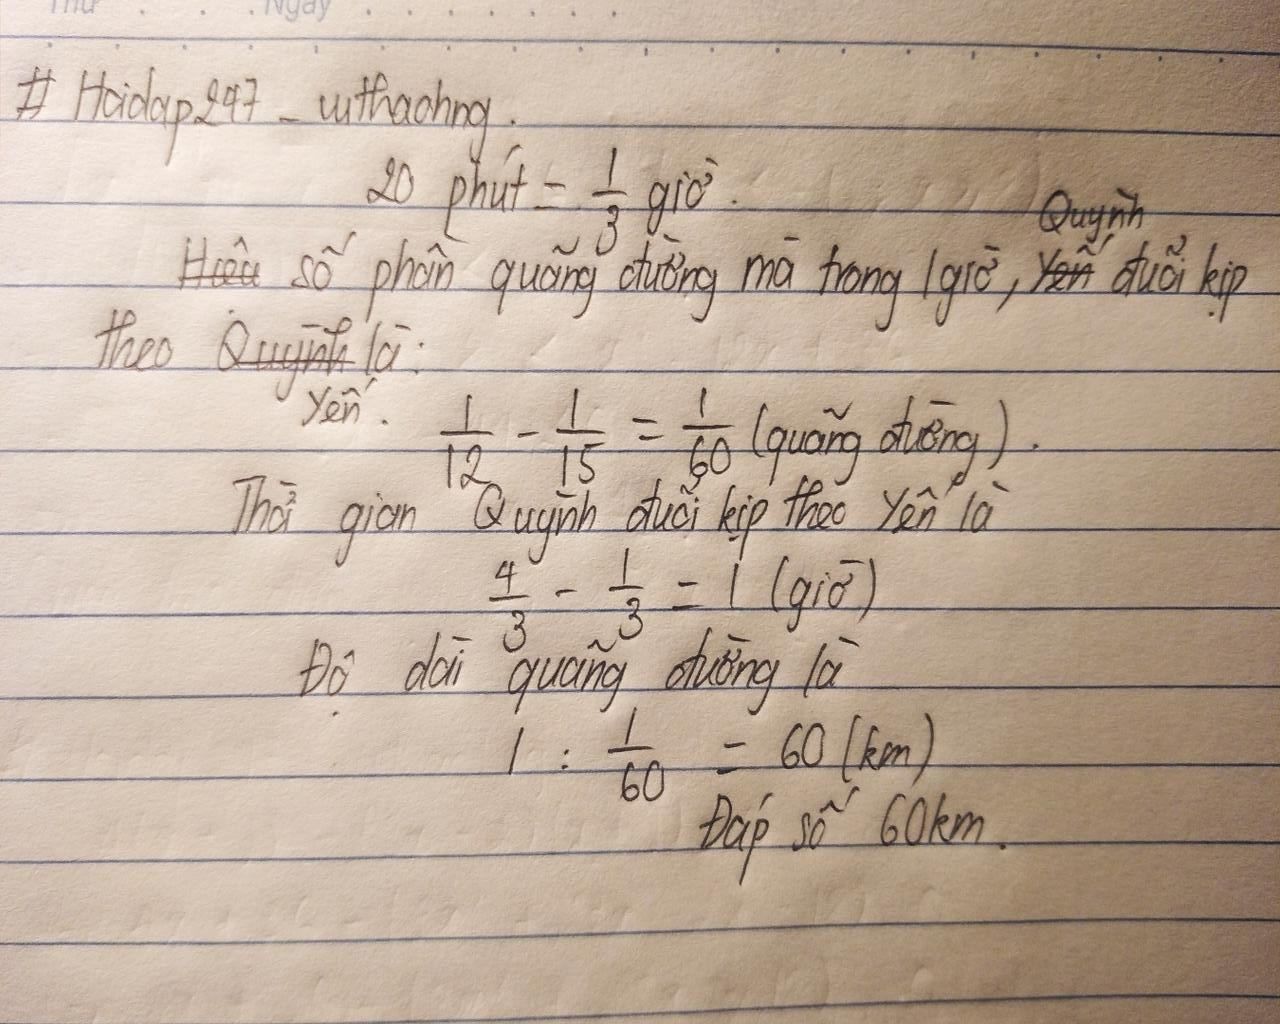 Thứ Ngày
# Hoidap247 _ wthaohng.
20 phút = 1/3 giờ.
Quỳnh
Hiệu số phần quãng đường mà trong 1 giờ, Yến đuổi kịp
theo Quỳnh là:
Yến.
1/12 - 1/15 = 1/60 (quãng đường).
Thời gian Quỳnh đuổi kịp theo Yến là
4/3 - 1/3 = 1 (giờ)
Độ dài quãng đường là
1 : 1/60 = 60 (km)
Đáp số 60km.